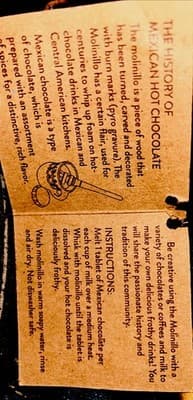 THE HISTORY OF
MEXICAN HOT CHOCOLATE
The molinillo is a piece of wood that
has been turned, carved and decorated
with burn marks (pyro gravure). The
Molinillo has a certain flair, used for
centuries to whip up foam on hot
chocolate drinks in Mexican and
Central American kitchens.
Mexican chocolate is a type
of chocolate, which is
prepared with an assortment
of spices for a distinctive, rich flavor.
Be creative using the Molinillo with a
variety of chocolates or coffees and milk to
make your own delicious frothy drinks! You
will share the passionate history and
tradition of this community.
INSTRUCTIONS
Melt 1 tablet of Mexican chocolate per
each cup of milk over a medium heat.
Whisk with molinillo until the tablet is
dissolved and your hot chocolate is
deliciously frothy.
Wash molinillo in warm soapy water, rinse
and air dry. Not dishwasher safe.